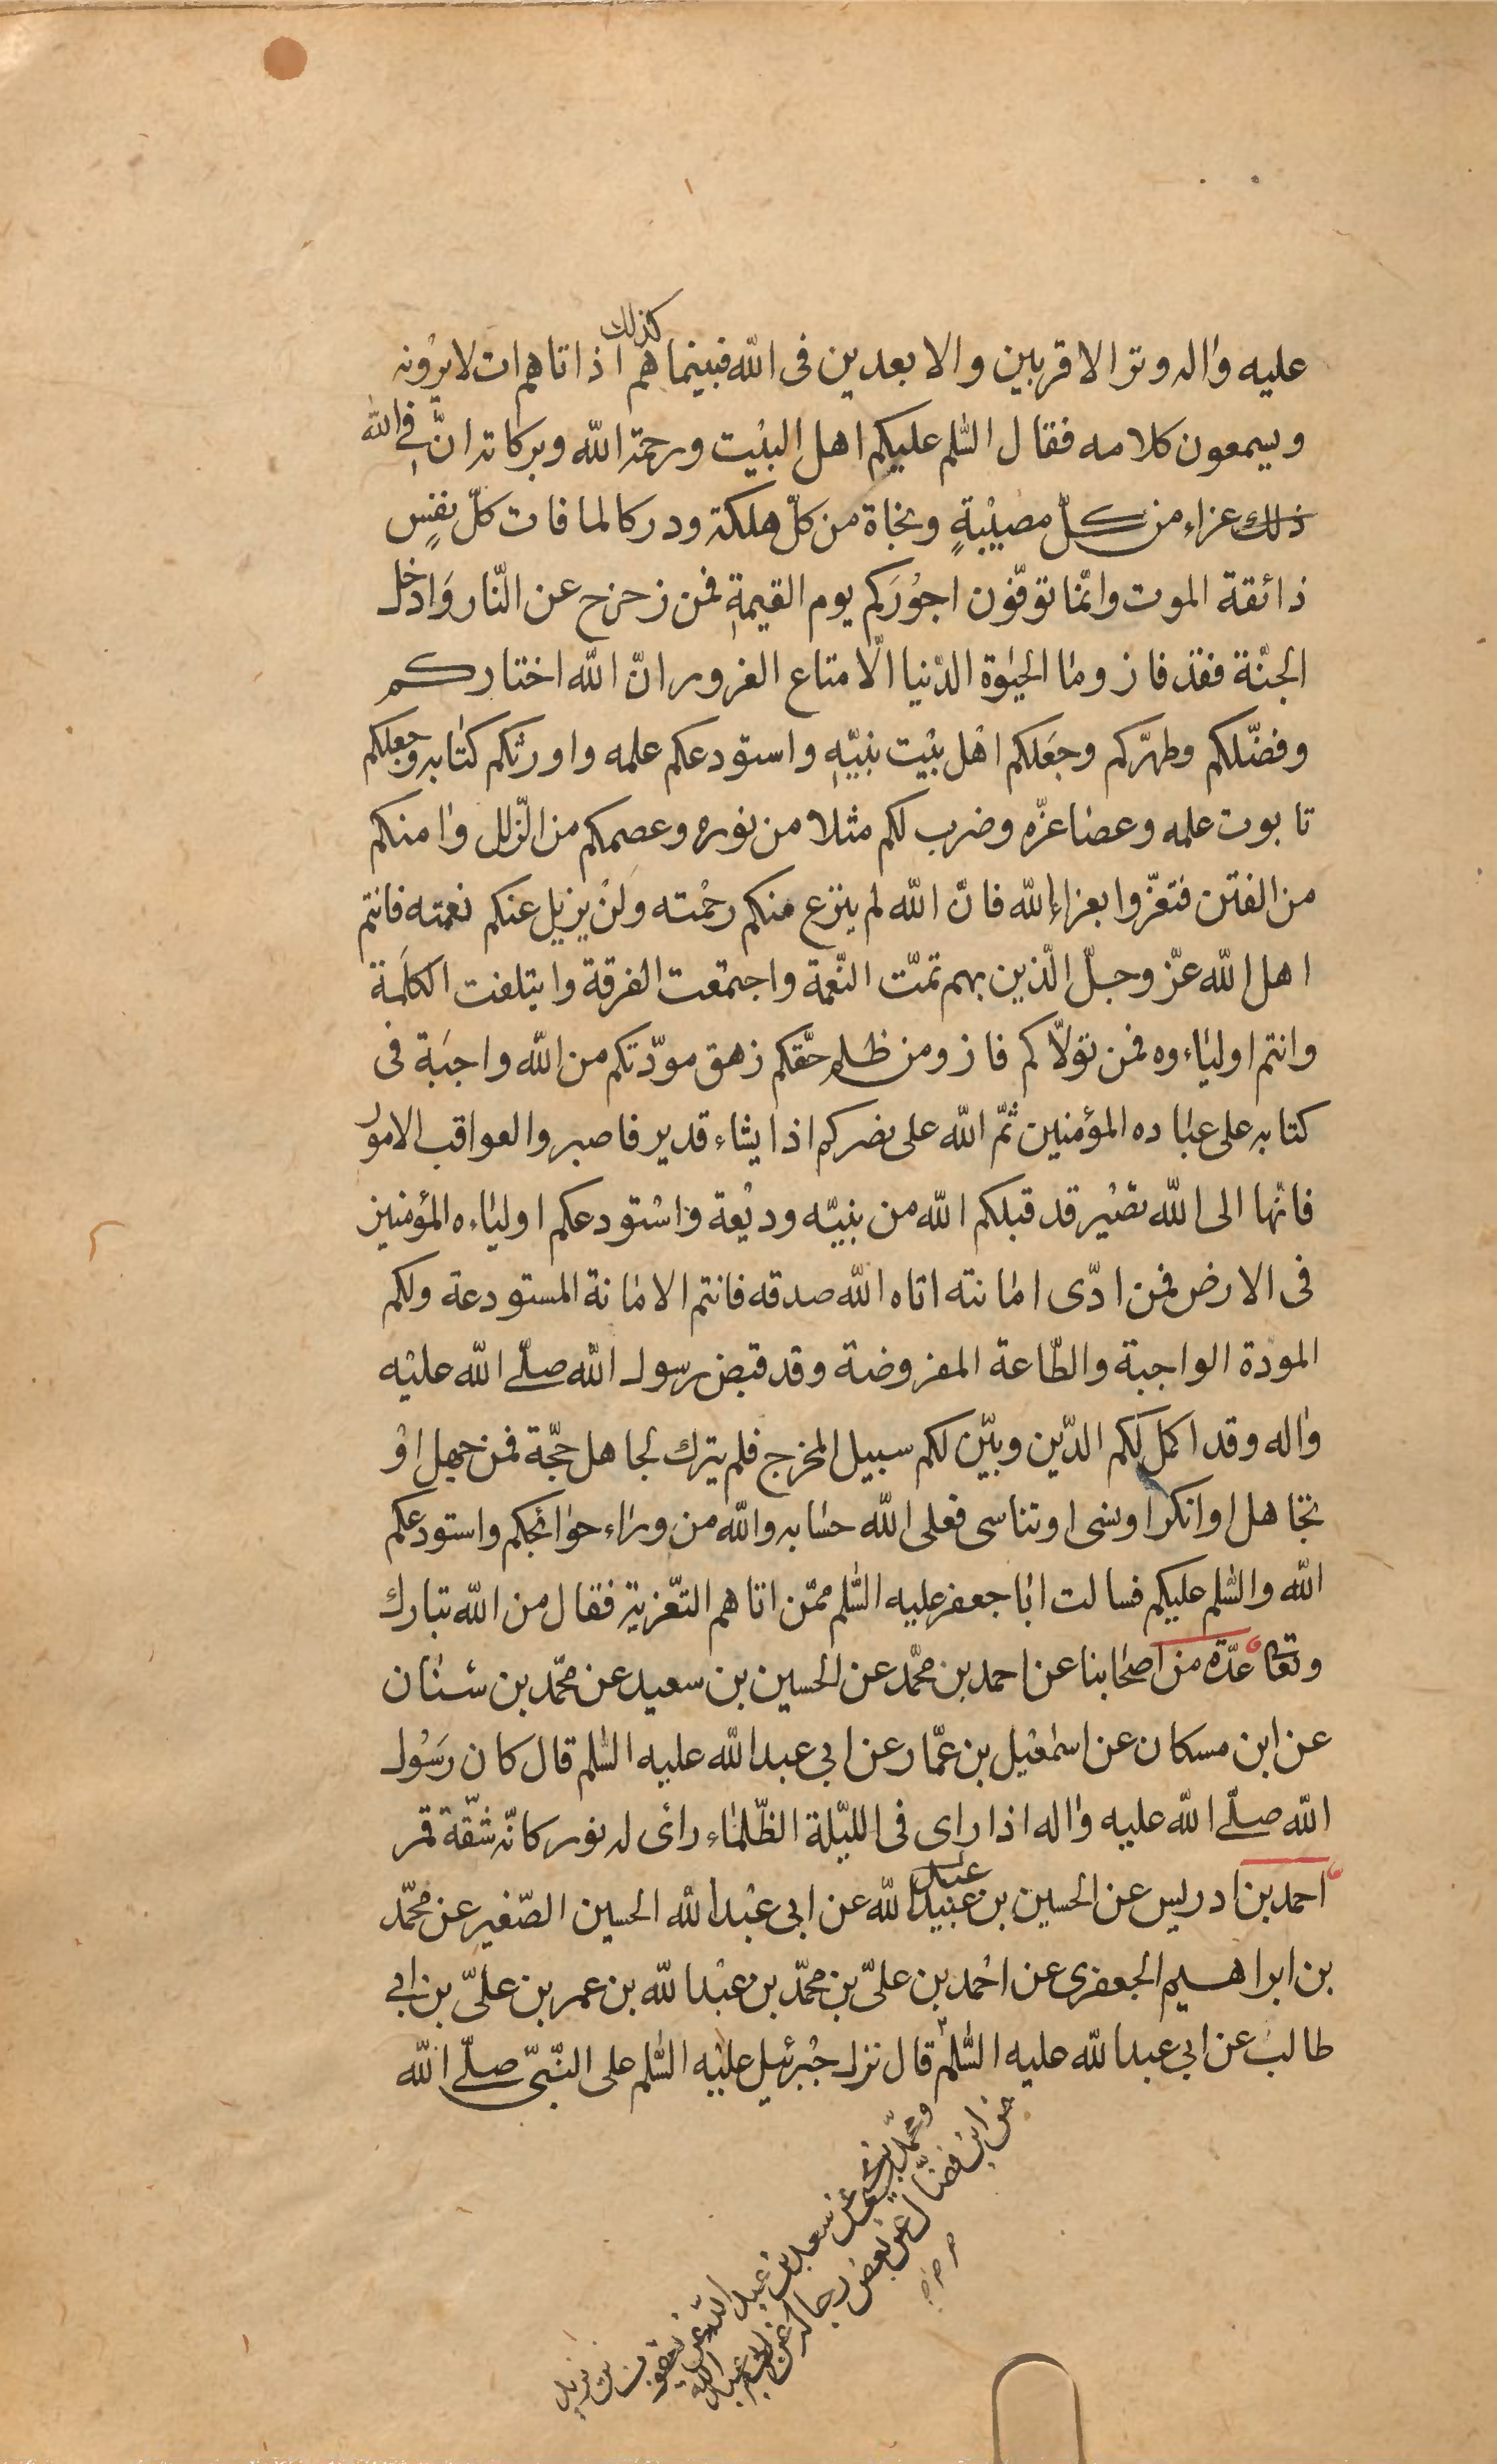 كذلك
عليه واله وتر الاقربين والابعدين فى الله فبينما هم اذ اتاهم ات لا يرونه
ويسمعون كلامه فقال السّلم عليكم اهل البيت ورحمة الله وبركاته انّ فى الله
ذلك عزاء من كلّ مصيبةٍ ونجاة من كلّ هلكة ودركا لما فات كلّ نفسٍ
ذائقة الموت وانّما توفّون اجُورَكم يوم القيمةِ فمن زحزح عن النّار وَادخل
الجنّة فقد فاز وما الحيٰوة الدّنيا الّا متاع الغرور انّ الله اختاركم
وفضّلكم وطهّركم وجعَلكم اهْل بيْت نبيّهِ واستودعكم علمه واورثكم كتابه وجعلكم
تابوت علمه وعصا عزّه وضرب لكم مثلا من نوره وعصمكم من الزّلل وامنكم
من الفتن فتعزّوا بعزاء الله فانّ الله لم ينزع منكم رحْمته ولَنْ يزيل عنكم نعمته فانتم
اهل الله عزّ وجلّ الّذين بهم تمّت النّعمة واجتمعت الفرقة وايتلفت الكلَمة
وانتم اولياءوه فمن تولّاكم فاز ومن ظلم حقّكم زهق مودّتكم من الله واجبَة فى
كتابه على عباده المؤمنين ثمّ الله على نصركم اذا يشاء قدير فاصبروا لعواقب الامور
فانّها الى الله تصْير قد قبلكم الله من نبيّه وديْعة وَاسْتودعكم اولياءه المؤمنين
فى الارض فمن ادّى امانته اتاه الله صدقه فانتم الامانة المستودعة ولكم
المودة الواجبة والطّاعة المفروضة وقد قبض رسول الله صلّى الله عليْه
واله وقد اكمل لكم الدّين وبيّن لكم سبيل المخرج فلم يترك لجاهل حجّة فمن جهل اوْ
تجاهل او انكر او نسى او تناسى فعلى الله حسابه والله من وراء حوائجكم واستودعكم
الله والسّلم عليكم فسالت ابا جعفر عليه السّلم ممّن اتاهم التّعزية فقال من الله تبارك
وتعا عدّة من اصحابنا عن احمد بن محمّد عن الحسين بن سعيد عن محمّد بن سنان
عن ابن مسكان عن اسْمعْيل بن عمّار عن ابى عبد الله عليه السّلم قال كان رَسُول
الله صلّى الله عليه واله اذا راى فى الليّلة الظّلماء رائى له نور كانّه شقّة قمر
احمد بن ادريس عن الحسين بن عبيد الله عن ابى عبْد الله الحسين الصّغير عن محمّد
عبد
بن ابراهيم الجعفرى عن احْمد بن علىّ بن محمّد بن عبْد الله بن عمر بن علىّ بن ابى
طالب عن ابى عبد الله عليه السّلم قال نزل جبْرئيل عليْه السّلم على النّبىّ صلّى الله
ومحمّد بن يحيى عن سعد بن عبد الله عن يعقوب بن يزيد
عن ابن فضّال عن بعض رجاله عن ابى عبد الله